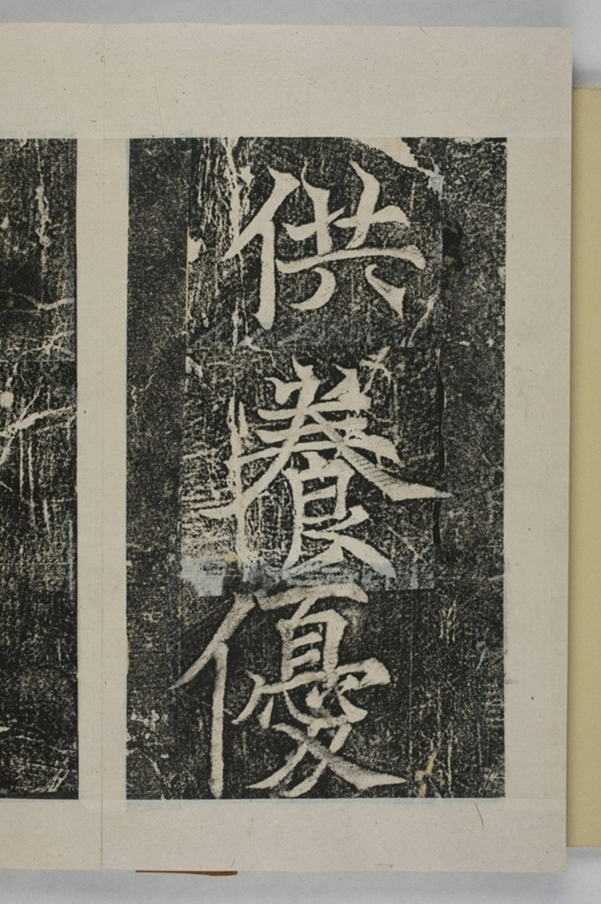 供
養
優